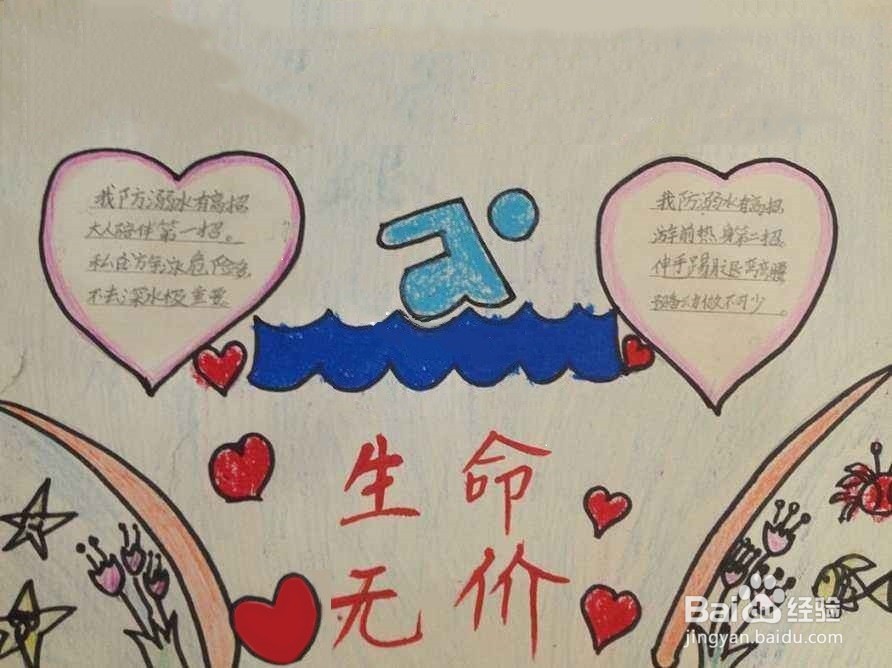 我防溺水有高招
大人陪伴第一招。
私自方年泳危险多
不去深水极重要
我防溺水有高招
游前热身第二招
伸手踢腿弯弯腰
预备动做不可少。
生命
无价
Baidu经验
jingyan.baidu.com